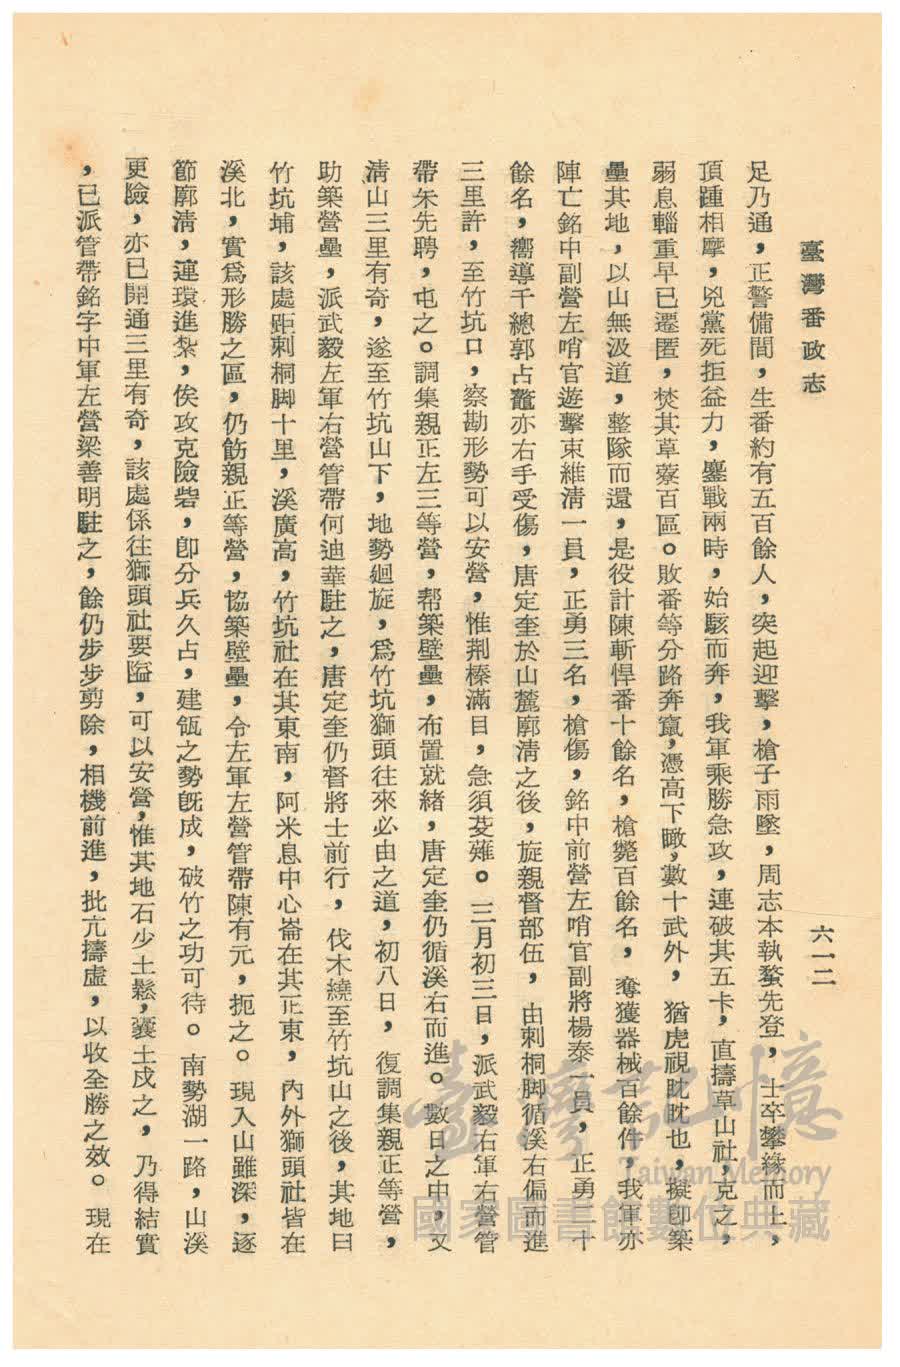 臺灣番政志
六一二
足乃通，正警備間，生番約有五百餘人，突起迎擊，槍子雨墜，周志本執蝥先登，士卒攀緣而上，
頂踵相摩，兇黨死拒益力，鏖戰兩時，始駭而奔，我軍乘勝急攻，連破其五卡，直擣草山社，克之，
弱息輜重早已遷匿，焚其草藔百區。敗番等分路奔竄，憑高下瞰，數十武外，猶虎視眈眈也，擬卽築
壘其地，以山無汲道，整隊而還，是役計陳斬悍番十餘名，槍斃百餘名，奪獲器械百餘件，我軍亦
陣亡銘中副營左哨官遊擊束維淸一員，正勇三名，槍傷，銘中前營左哨官副將楊泰一員，正勇二十
餘名，嚮導千總郭占鼇亦右手受傷，唐定奎於山麓廓淸之後，旋親督部伍，由刺桐脚循溪右偏而進
三里許，至竹坑口，察勘形勢可以安營，惟荆榛滿目，急須芟薙。三月初三日，派武毅右軍右營管
帶朱先聘，屯之。調集親正左三等營，帮築壁壘，布置就緒，唐定奎仍循溪右而進。數日之中，又
淸山三里有奇，遂至竹坑山下，地勢廻旋，爲竹坑獅頭往來必由之道，初八日，復調集親正等營，
助築營壘，派武毅左軍右營管帶何迪華駐之，唐定奎仍督將士前行，伐木繞至竹坑山之後，其地曰
竹坑埔，該處距刺桐脚十里，溪廣高，竹坑社在其東南，阿米息中心崙在其正東，內外獅頭社皆在
溪北，實爲形勝之區，仍飭親正等營，協築壁壘，令左軍左營管帶陳有元，扼之。現入山雖深，逐
節廓淸，連環進紮，俟攻克險砦，卽分兵久占，建瓴之勢旣成，破竹之功可待。南勢湖一路，山溪
更險，亦已開通三里有奇，該處係往獅頭社要隘，可以安營，惟其地石少土鬆，囊土戍之，乃得結實
，已派管帶銘字中軍左營梁善明駐之，餘仍步步剪除，相機前進，批亢擣虛，以收全勝之效。現在
臺灣記憶
Taiwan Memory
國家圖書館數位典藏